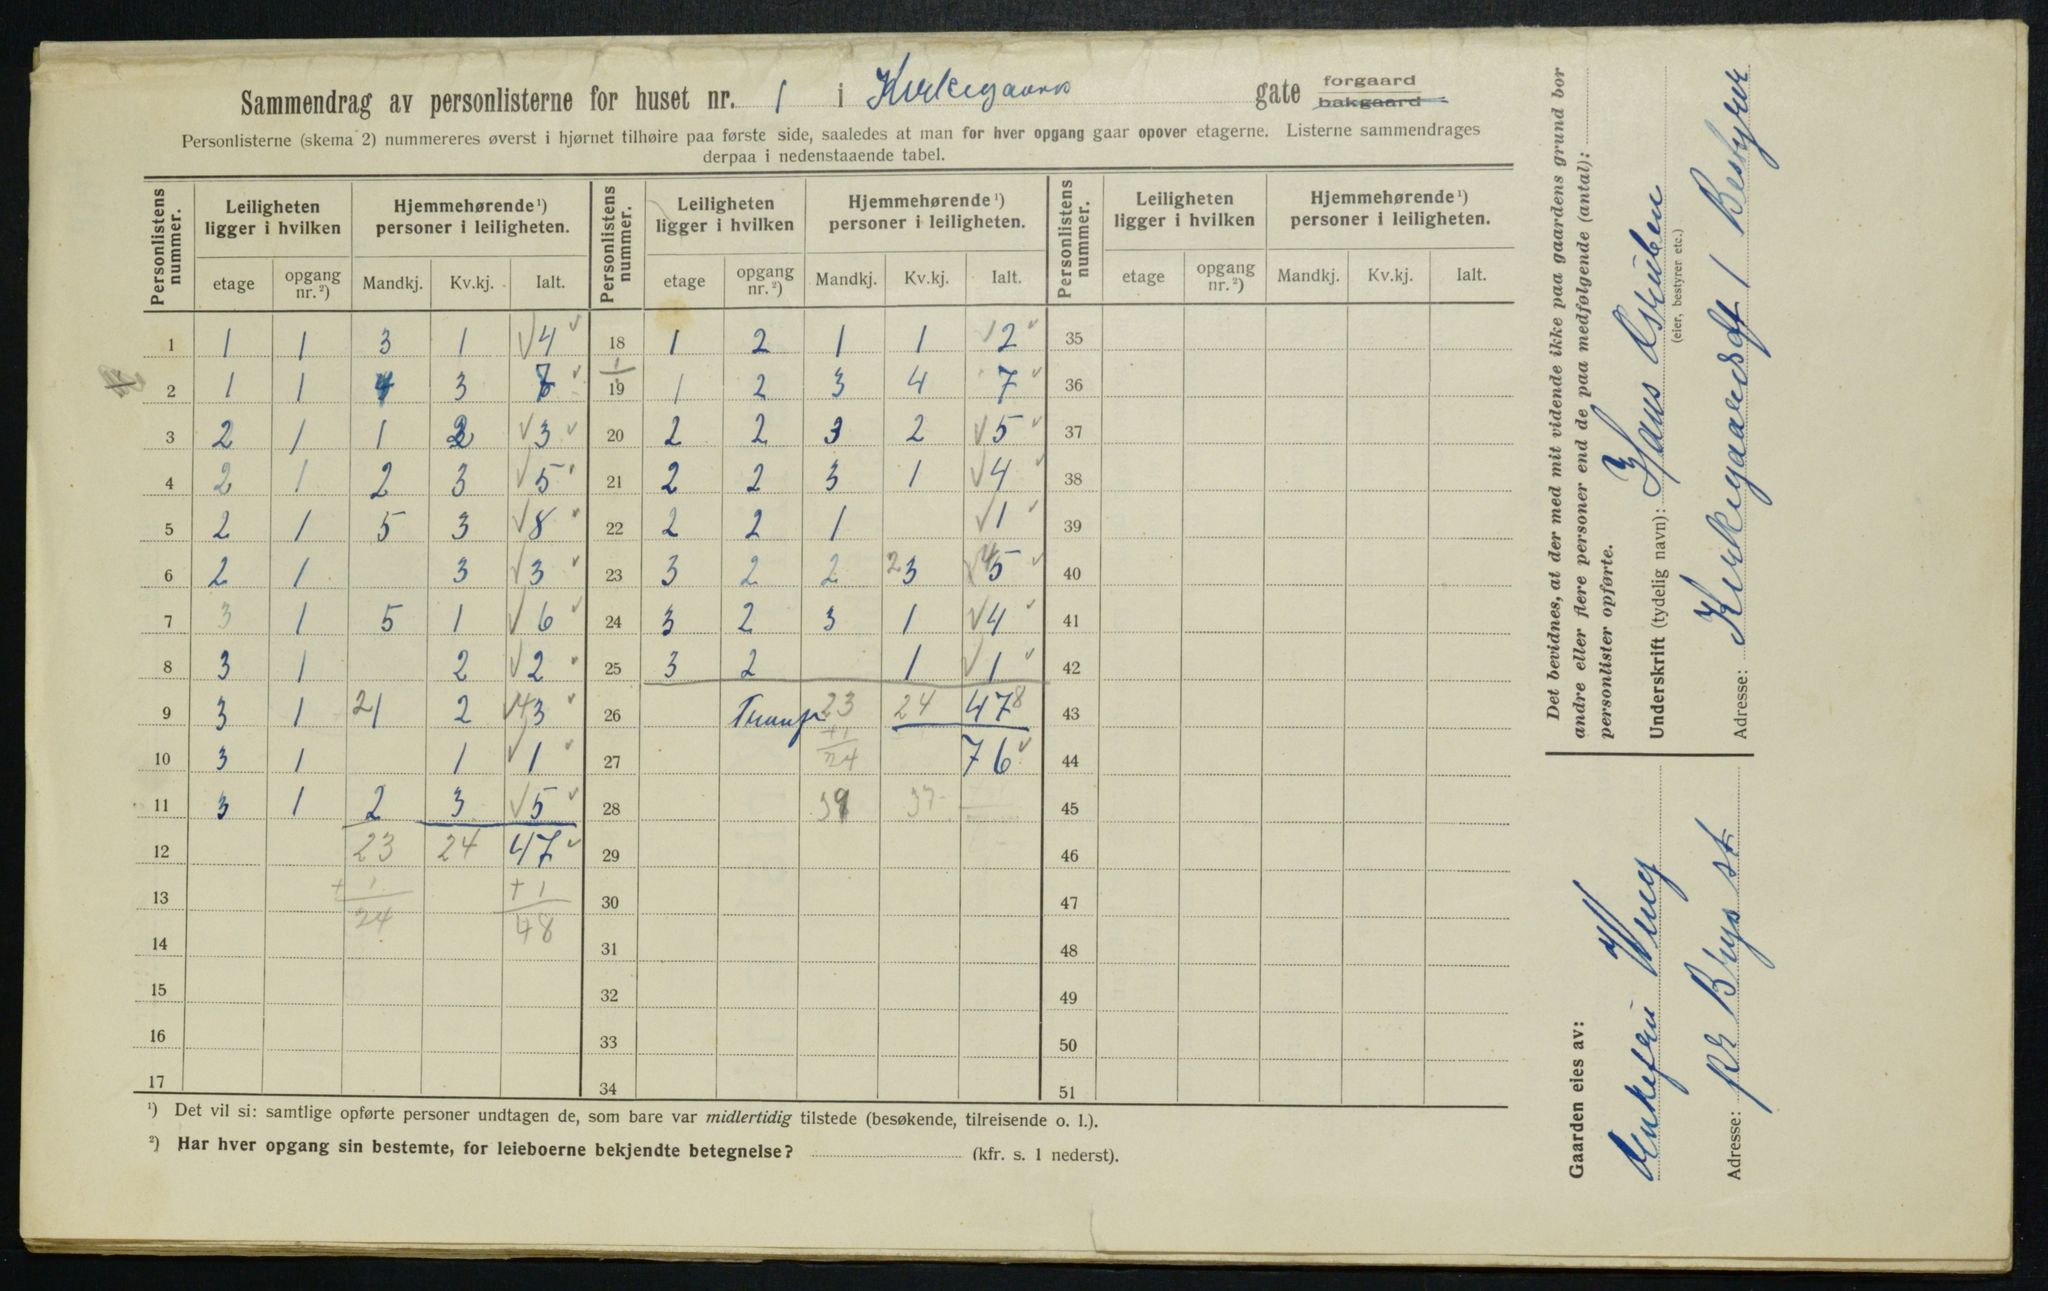 Sammendrag av personlisterne for huset nr. 1 i Kirkegaards gate forgaard bakgaard
Personlisterne (skema 2) nummereres øverst i hjørnet tilhøire paa første side, saaledes at man for hver opgang gaar opover etagerne. Listerne sammendrages
derpaa i nedenstaaende tabel.
Personlistens nummer. Leiligheten ligger i hvilken Hjemmehørende ¹) personer i leiligheten. Personlistens nummer. Leiligheten ligger i hvilken Hjemmehørende ¹) personer i leiligheten. Personlistens nummer. Leiligheten ligger i hvilken Hjemmehørende ¹) personer i leiligheten.
etage opgang nr. ²) Mandkj. Kv.kj. Ialt. etage opgang nr. ²) Mandkj. Kv.kj. Ialt. etage opgang nr. ²) Mandkj. Kv.kj. Ialt.
1 1 1 3 1 √ 4 18 1 2 1 1 √ 2 35
2 1 1 4 3 7 19 1 2 3 4 7 36
3 2 1 1 2 √ 3 20 2 2 3 2 √ 5 37
4 2 1 2 3 √ 5 21 2 2 3 1 √ 4 38
5 2 1 5 3 √ 8 22 2 2 1 √ 1 39
6 2 1 3 √ 3 23 3 2 2 2 3 4 5 40
7 3 1 5 1 √ 6 24 3 2 3 1 √ 4 41
8 3 1 2 √ 2 25 3 2 1 √ 1 42
9 3 1 2 1 2 √ 4 3 26 23 24 47 8 43
10 3 1 1 √ 1 27 +1 24 76 44
11 3 1 2 3 √ 5 28 39 37 45
12 23 24 47 29 46
13 + 1 + 1 30 47
24 48
14 31 48
15 32 49
16 33 50
17 34 51
¹) Det vil si: samtlige opførte personer undtagen de, som bare var midlertidig tilstede (besøkende, tilreisende o. l.).
²) Har hver opgang sin bestemte, for leieboerne bekjendte betegnelse? (kfr. s. 1 nederst).
Det bevidnes, at der med mit vidende ikke paa gaardens grund bor
andre eller flere personer end de paa medfølgende (antal):
personlister opførte.
Underskrift (tydelig navn): Hans
(eier, bestyrer etc.)
Adresse: Kirkegaardsgt 1 Bestyrer
Gaarden eies av:
Enkefru Wiig
Adresse: pr Bryn st.